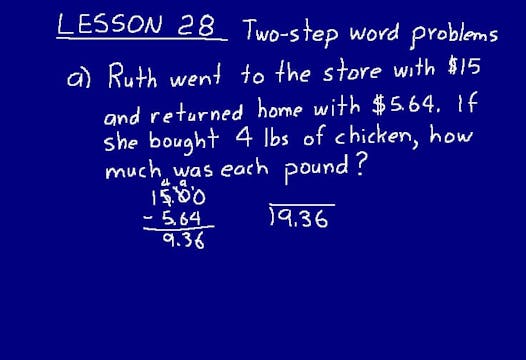 LESSON 28 Two-step word problems
a) Ruth went to the store with $15
and returned home with $5.64. If
she bought 4 lbs of chicken, how
much was each pound?
4 9 1
15.00
- 5.64
9.36
)9.36